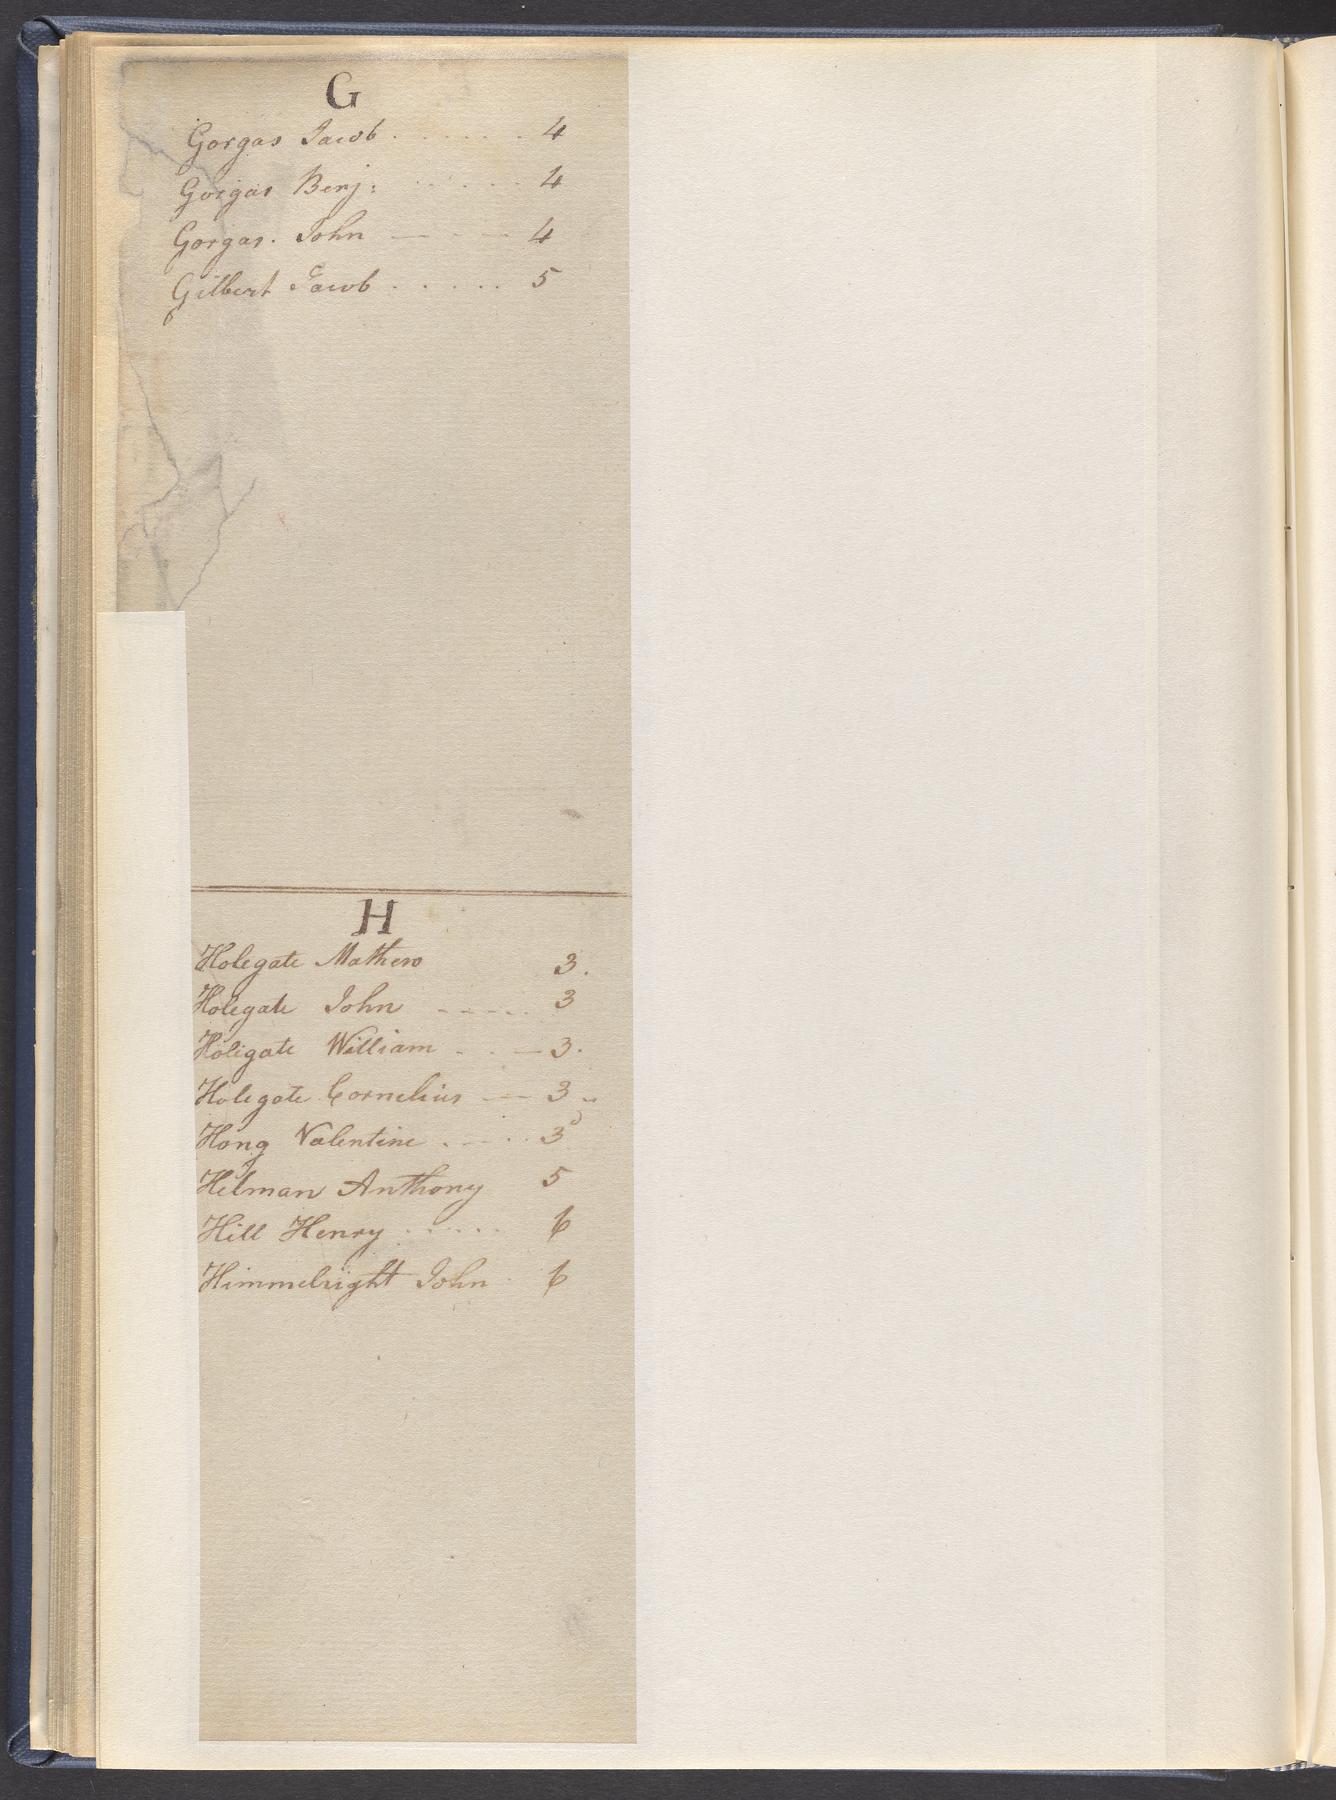 G
Gorgas Jacob . . . . . . . 4
Gorgas Benj: . . . . . 4
Gorgas. John — - - — 4
Gilbert Jacob . . . . . . 5
H
Holegate Mathew 3.
Holegate John - - - - . 3
Holigate William - . . — 3.
Holegate Cornelius — — 3 ..
Hong Valentine . - - . . 3
Helman Anthony 5
Hill Henry . . . . . . 6
Himmelright John . 6